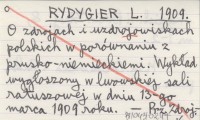 RYDYGIER L. 1909.
O zdrojach i uzdrojowiskach
polskich w porównaniu z
prusko-niemieckiemi. Wykład
wygłoszony w lwowskiej sali
ratuszowej w dniu 13-go
marca 1909 roku. Prz. Zdroj.